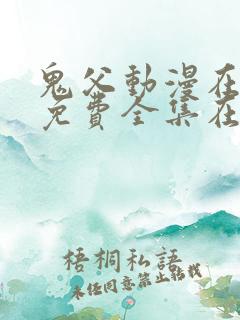 鬼父動漫在
免費全集在
梧桐私語
未经同意禁止转载